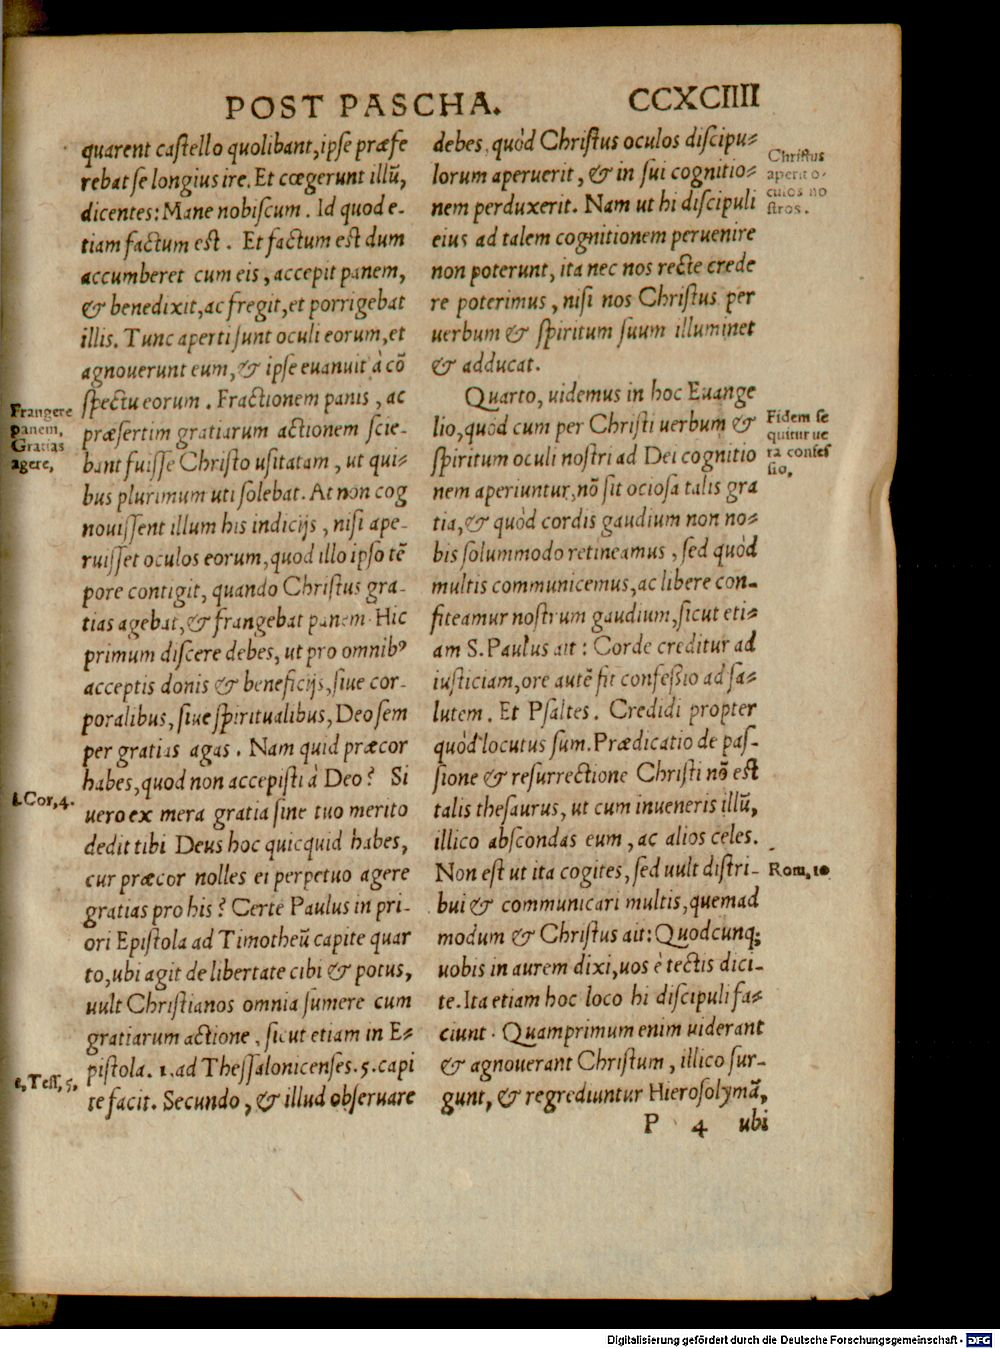 POST PASCHA.
CCXCIIII
quarent castello quo libant, ipse præse
rebat se longius ire. Et cœgerunt illũ,
dicentes: Mane nobiscum. Id quod e-
tiam factum est. Et factum est dum
accumberet cum eis, accepit panem,
& benedixit, ac fregit, et porrigebat
illis. Tunc aperti sunt oculi eorum, et
agnouerunt eum, & ipse euanuit à cõ
spectu eorum. Fractionem panis, ac
præsertim gratiarum actionem scie-
bant fuisse Christo usitatam, ut qui-
bus plurimum uti solebat. At non cog
nouissent illum his indicijs, nisi ape-
ruisset oculos eorum, quod illo ipso tẽ
pore contigit, quando Christus gra-
tias agebat, & frangebat panem. Hic
primum discere debes, ut pro omnibꝰ
acceptis donis & beneficijs, siue cor-
poralibus, siue spiritualibus, Deo sem
per gratias agas. Nam quid præcor
habes, quod non accepisti à Deo? Si
uero ex mera gratia sine tuo merito
dedit tibi Deus hoc quicquid habes,
cur præcor nolles ei perpetuo agere
gratias pro his? Certe Paulus in pri-
ori Epistola ad Timotheũ capite quar
to, ubi agit de libertate cibi & potus,
uult Christianos omnia sumere cum
gratiarum actione, sicut etiam in E-
pistola. 1. ad Thessalonicenses. 5. capi
te facit. Secundo, & illud obseruare
Frangere
panem,
Gratias
agere,
1.Cor,4.
Tess,5,
debes, quòd Christus oculos discipu-
lorum aperuerit, & in sui cognitio-
nem perduxerit. Nam ut hi discipuli
eius ad talem cognitionem peruenire
non poterunt, ita nec nos recte crede
re poterimus, nisi nos Christus per
uerbum & spiritum suum illuminet
& adducat.
Quarto, uidemus in hoc Euange
lio, quòd cum per Christi uerbum &
spiritum oculi nostri ad Dei cognitio
nem aperiuntur, nõ sit ociosa talis gra
tia, & quòd cordis gaudium non no-
bis solummodo retineamus, sed quòd
multis communicemus, ac libere con-
fiteamur nostrum gaudium, sicut eti-
am S. Paulus ait: Corde creditur ad
iusticiam, ore autẽ fit confessio ad sa-
lutem. Et Psaltes. Credidi propter
quòd locutus sum. Prædicatio de pas-
sione & resurrectione Christi nõ est
talis thesaurus, ut cum inueneris illũ,
illico abscondas eum, ac alios celes.
Non est ut ita cogites, sed uult distri-
bui & communicari multis, quemad
modum & Christus ait: Quodcunq;
uobis in aurem dixi, uos è tectis dici-
te. Ita etiam hoc loco hi discipuli fa-
ciunt. Quamprimum enim uiderant
& agnouerant Christum, illico sur-
gunt, & regrediuntur Hierosolymã,
P 4 ubi
Christus
aperit o-
culos no
stros.
Fidem se
quitur ue
ra confes
sio,
Rom,10
Digitalisierung gefördert durch die Deutsche Forschungsgemeinschaft - DFG